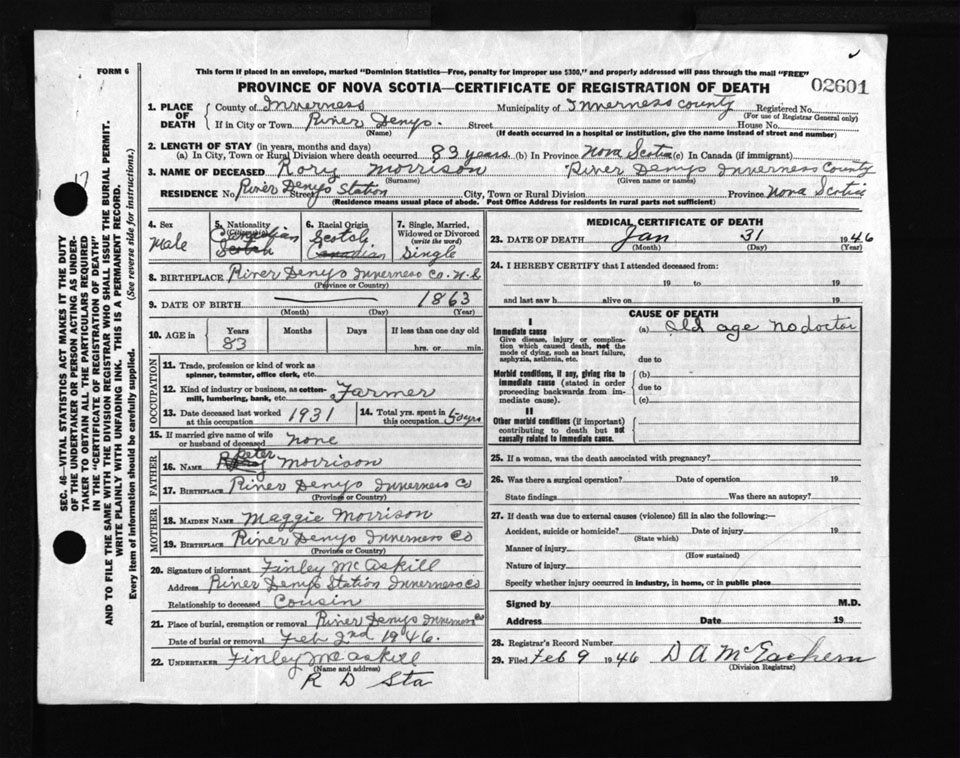 FORM 6
This form if placed in an envelope, marked "Dominion Statistics—Free, penalty for improper use $300," and properly addressed will pass through the mail "FREE"
PROVINCE OF NOVA SCOTIA—CERTIFICATE OF REGISTRATION OF DEATH
02601
1. PLACE OF DEATH County of Inverness Municipality of Inverness County Registered No.
(For use of Registrar General only)
If in City or Town River Denys. Street House No.
(Name) (If death occurred in a hospital or institution, give the name instead of street and number)
2. LENGTH OF STAY (in years, months and days)
(a) In City, Town or Rural Division where death occurred 83 years (b) In Province Nova Scotia (c) In Canada (if immigrant)
3. NAME OF DECEASED Rory Morrison River Denys Inverness County
(Surname) (Given name or names)
RESIDENCE No. River Denys Station Street City, Town or Rural Division Province Nova Scotia
(Residence means usual place of abode. Post Office Address for residents in rural parts not sufficient)
4. Sex Male
5. Nationality (Citizenship) Canadian Scotch
6. Racial Origin Scotch Canadian
7. Single, Married, Widowed or Divorced (write the word) Single
8. BIRTHPLACE River Denys Inverness Co. N.S
(Province or Country)
9. DATE OF BIRTH 1863
(Month) (Day) (Year)
10. AGE in Years 83 Months Days If less than one day old
hrs. or min.
OCCUPATION
11. Trade, profession or kind of work as spinner, teamster, office clerk, etc.
12. Kind of industry or business, as cotton-mill, lumbering, bank, etc. Farmer
13. Date deceased last worked at this occupation 1931 14. Total yrs. spent in this occupation 50 yrs
15. If married give name of wife or husband of deceased none
FATHER
16. NAME Peter Morrison
17. BIRTHPLACE River Denys Inverness Co
(Province or Country)
MOTHER
18. MAIDEN NAME Maggie Morrison
19. BIRTHPLACE River Denys Inverness Co
(Province or Country)
20. Signature of informant Finley McAskill
Address River Denys Station Inverness Co
Relationship to deceased Cousin
21. Place of burial, cremation or removal River Denys Inverness Co
Date of burial or removal Feb 2nd 1946.
22. UNDERTAKER Finley McAskill
(Name and address)
R D Sta
MEDICAL CERTIFICATE OF DEATH
23. DATE OF DEATH Jan 31 1946
(Month) (Day) (Year)
24. I HEREBY CERTIFY that I attended deceased from:
19 to 19
and last saw h alive on 19
CAUSE OF DEATH
I
Immediate cause
Give disease, injury or complication which caused death, not the mode of dying, such as heart failure, asphyxia, asthenia, etc.
(a) Old age no doctor
due to
Morbid conditions, if any, giving rise to immediate cause (stated in order proceeding backwards from immediate cause).
(b)
due to
(c)
II
Other morbid conditions (if important) contributing to death but not causally related to immediate cause.
25. If a woman, was the death associated with pregnancy?
26. Was there a surgical operation? Date of operation 19
State findings Was there an autopsy?
27. If death was due to external causes (violence) fill in also the following:—
Accident, suicide or homicide? Date of injury 19
(State which)
Manner of injury
(How sustained)
Nature of injury
Specify whether injury occurred in industry, in home, or in public place
Signed by M.D.
Address Date 19
28. Registrar's Record Number
29. Filed Feb 9 1946 D A McEachern
(Division Registrar)
SEC. 46—VITAL STATISTICS ACT MAKES IT THE DUTY
OF THE UNDERTAKER OR PERSON ACTING AS UNDER-
TAKER TO OBTAIN ALL THE PARTICULARS REQUIRED
IN THE "CERTIFICATE OF REGISTRATION OF DEATH"
AND TO FILE THE SAME WITH THE DIVISION REGISTRAR WHO SHALL ISSUE THE BURIAL PERMIT.
WRITE PLAINLY WITH UNFADING INK. THIS IS A PERMANENT RECORD.
Every item of information should be carefully supplied. (See reverse side for instructions.)
17